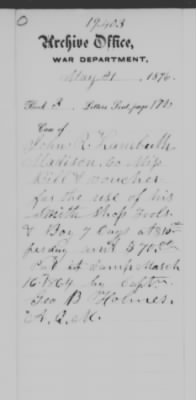 12403
Archive Office,
WAR DEPARTMENT,
May 31, 1876.
Book 3. Letters Sent, page 178
Case of
John R.
Madison Co Miss
Bill & voucher
for the use of his
Smith Shop Tools
& Boy 7 days at $10
per day amt $70.
at Camp March
16. 1864 by Capt
Geo B Holmes.
A. Q. M.